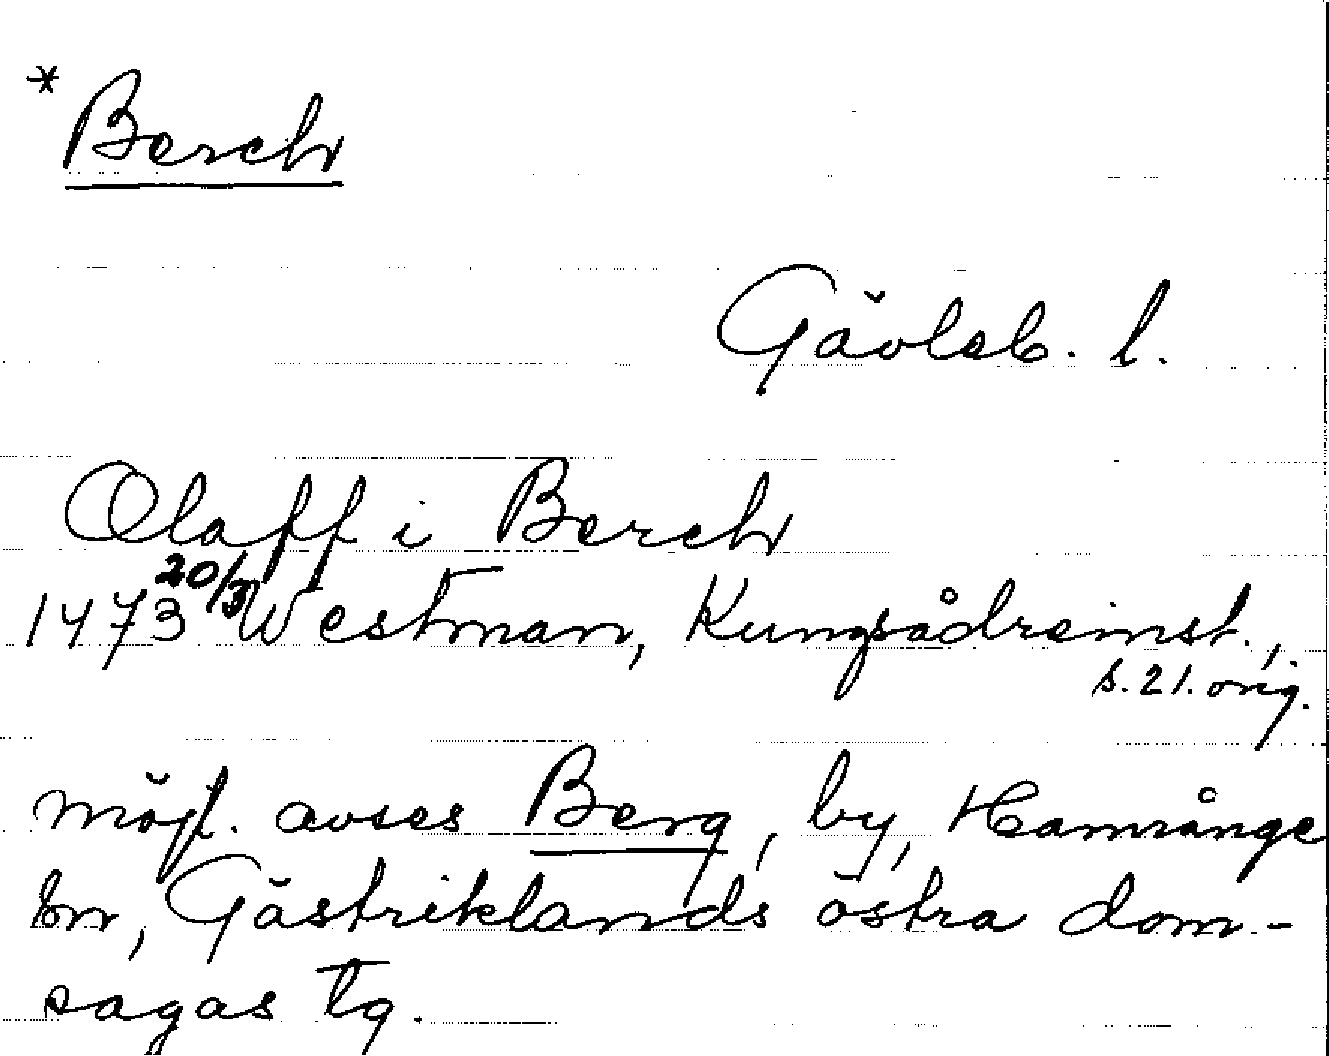 *Berch
Gävleb. l.
Olaff i Berch
1473 20/3 Westman, Kungsådreinst.,
s. 21. orig.
möjl. avses Berg, by, Hamrånge
sn, Gästriklands östra dom-
sagas tg.